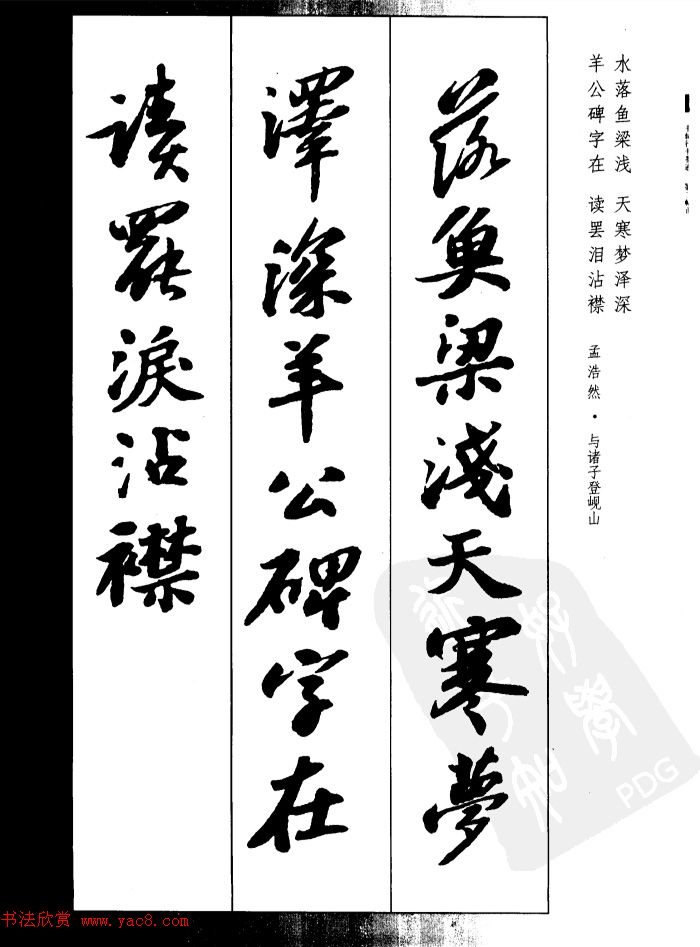 水落鱼梁浅 天寒梦泽深
羊公碑字在 读罢泪沾襟
孟浩然·与诸子登岘山
落魚梁淺天寒夢
澤深羊公碑字在
讀罷淚沾襟
PDG
书法欣赏 www.yac8.com